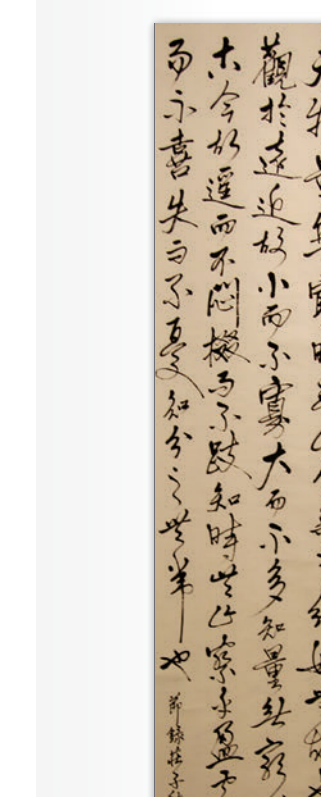 觀於遠近故小而不寡大而不多知量無窮
古今故遙而不悶掇而不跂知時無止察乎盈虛
而不喜失而不憂知分之無常也
節錄莊子